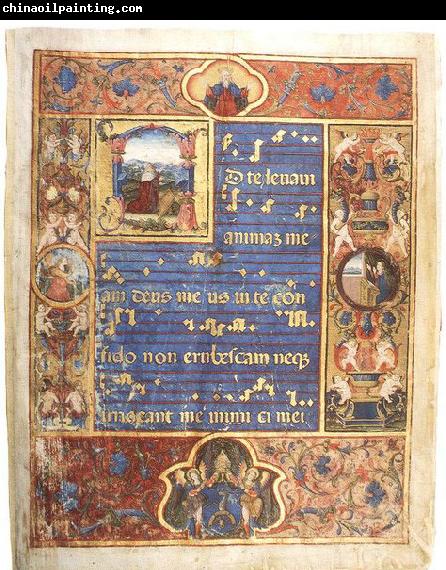 chinaoilpainting.com
A
D te levavi
animaz me
am deus me us in te con
fido non erubescam neq3
irrideant me inimi ci mei